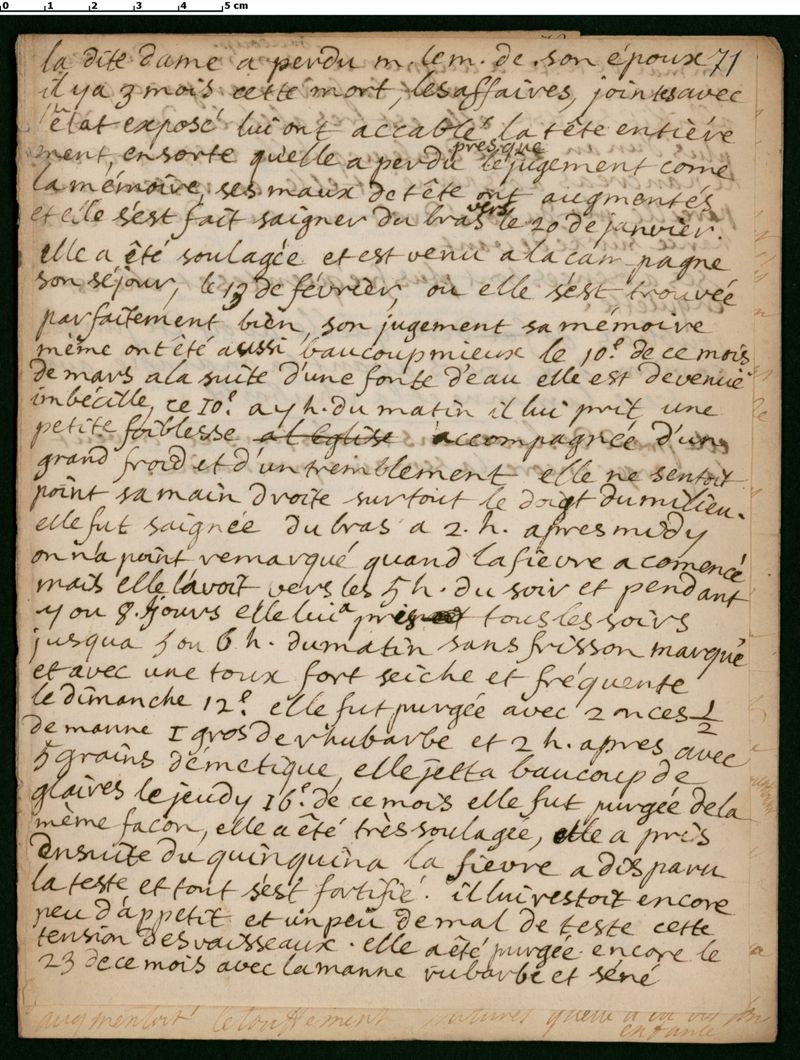 0 1 2 3 4 5 cm
71
la dite dame a perdu m. lem. de. son époux
il y a 3 mois cette mort, les affaires, jointes avec
l'état exposé lui ont accablé la tête entiére
ment, ensorte quelle a perdu presque le jugement come
la mémoire, ses maux de tête ont augmentés
et elle s'est fait saigner du bras vers le 20 de janvier.
elle a été soulagée et est venu a la campagne
son séjour, le 13 de février, où elle s'est trouvée
parfaitement bien, son jugement sa mémoire
même ont été aussi beaucoup mieux le 10e. de ce mois
de mars a la suite d'une fonte d'eau elle est devenuë
imbécille, ce 10e. a 7 h. du matin il lui prit une
petite foiblesse a l'Eglise accompagnée d'un
grand froid et d'un tremblement elle ne sentoit
point sa main droite surtout le doigt du milieu.
elle fut saignée du bras a 2. h. apres midy
on n'a point remarqué quand la fievre a comencé
mais elle l'avoit vers les 5 h. du soir et pendant
7 ou 8. jours elle lui a pris tous les soirs
jusqua 5 ou 6 h. du matin sans frisson marqué
et avec une toux fort seiche et fréquente
le dimanche 12e. elle fut purgée avec 2 onces 1/2
de manne 1 gros de rhubarbe et 2 h. apres avec
5 grains d'émetique, elle jetta beaucoup de
glaires le jeudy 16e. de ce mois elle fut purgée de la
même facon, elle a été très soulagée, elle a pris
ensuite du quinquina la fievre a disparu
la teste et tout s'est fortifié. il lui restoit encore
peu d'appetit et un peu de mal de teste cette
tension des vaisseaux. elle a été purgée encore le
23 de ce mois avec la manne rubarbe et séné
augmentoit l'etouffement